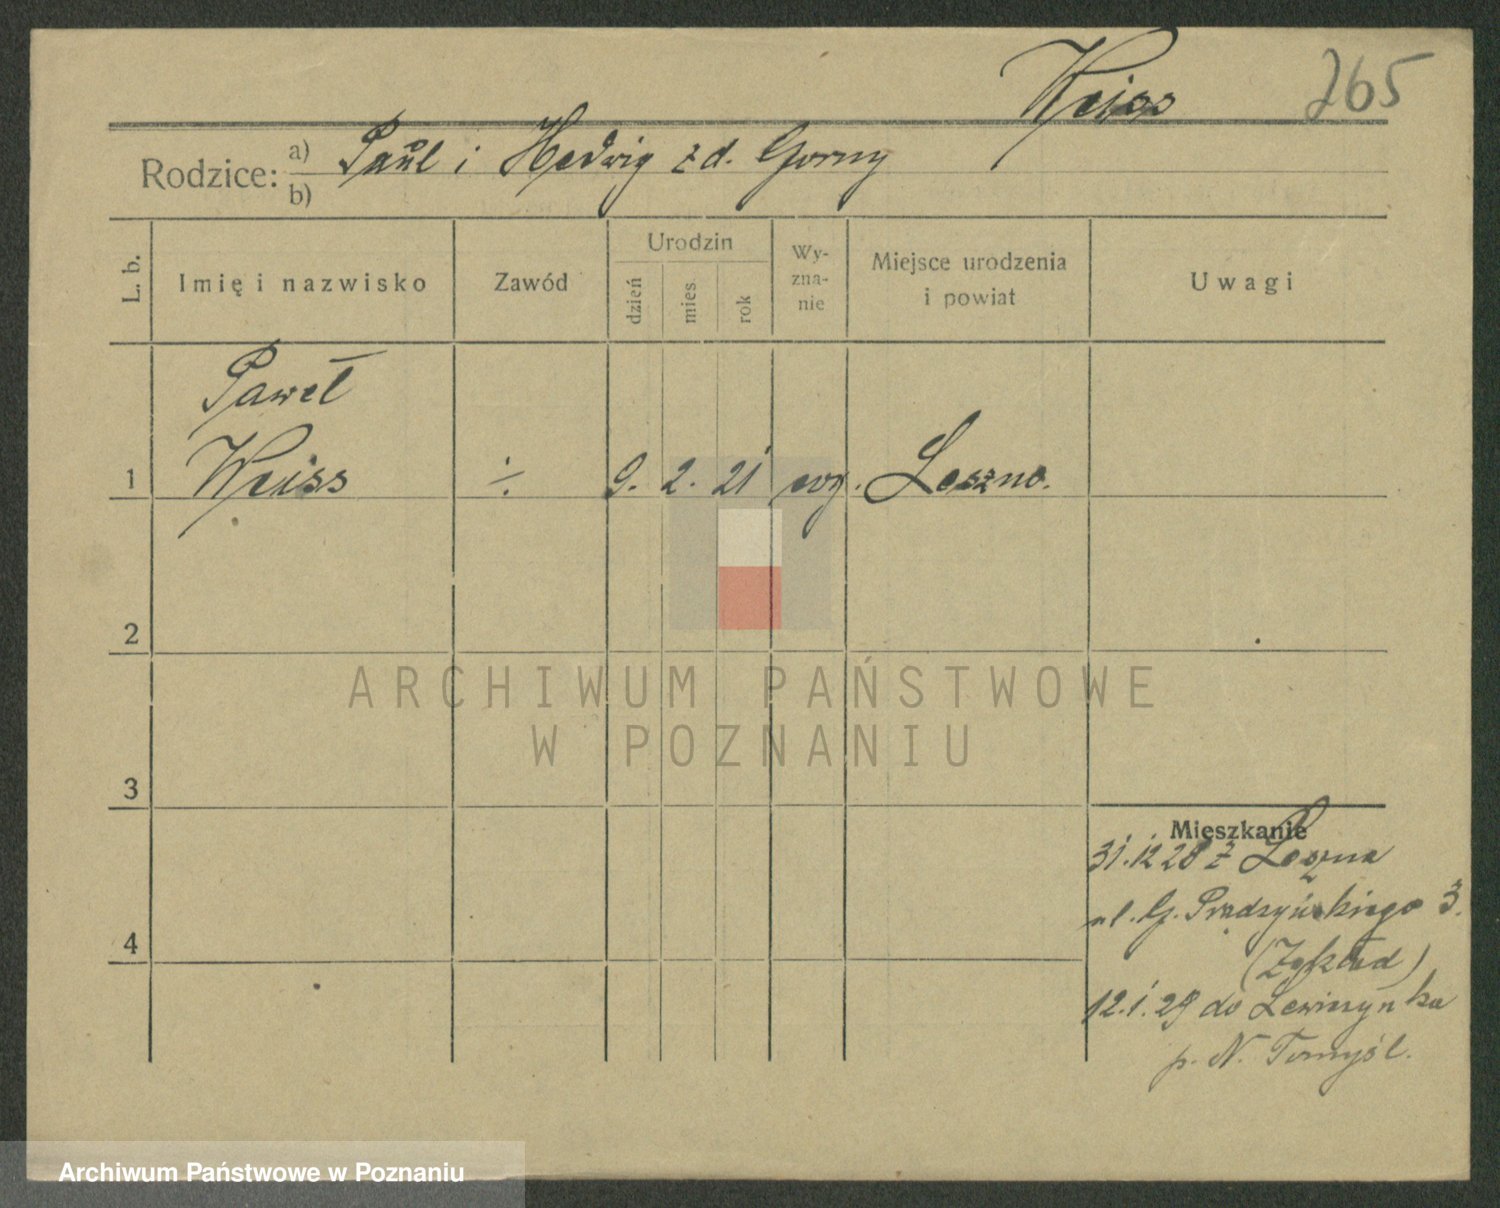 Weiss 265
Rodzice: a) Paul i Hedwig z d. Gorny
b)
L. b. Imię i nazwisko Zawód Urodzin dzień mies. rok Wyznanie Miejsce urodzenia i powiat Uwagi
Paweł
1 Weiss ÷ 9. 2. 21 ewg. Leszno.
2
3
Mieszkanie
31.12 28 z Leszna
ul. G. Prądzyńskiego 3.
(Zakład)
4
12.1.29 do
p. N. Tomyśl.
ARCHIWUM PAŃSTWOWE
W POZNANIU
Archiwum Państwowe w Poznaniu